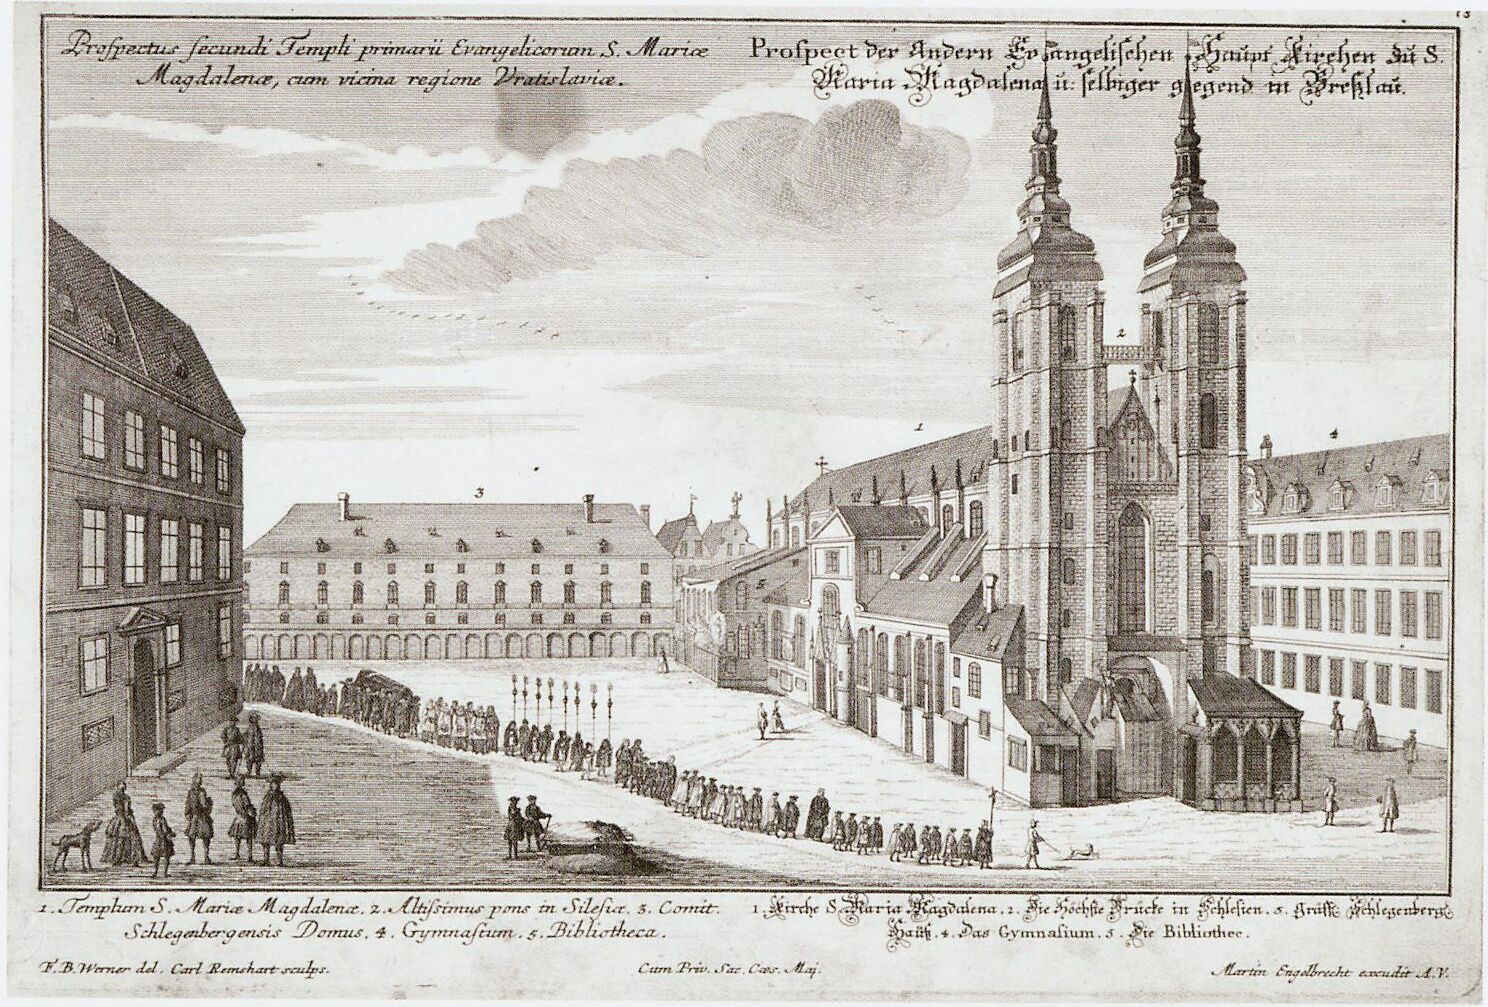 Prospectus secundi Templi primarii Evangelicorum S. Mariæ
Magdalenæ, cum vicina regione Vratislaviæ.
Prospect der Andern Evangelischen Haupt Kirchen zu S.
Maria Magdalena u: selbiger gegend in Breßlau.
2
1
4
3
5
1. Templum S. Mariæ Magdalenæ. 2. Altissimus pons in Silesia. 3. Comit.
Schlegenbergensis Domus. 4. Gymnasium. 5. Bibliotheca.
1. Kirche S. Maria Magdalena. 2. Die Höchste Brücke in Schlesien. 3. Gräffl. Schlegenberg.
Hauß. 4. Das Gymnasium. 5. Die Bibliothec.
F. B. Werner del. Carl Remshart sculps.
Cum Priv. Sac. Cæs. Maj.
Martin Engelbrecht excudit A.V.